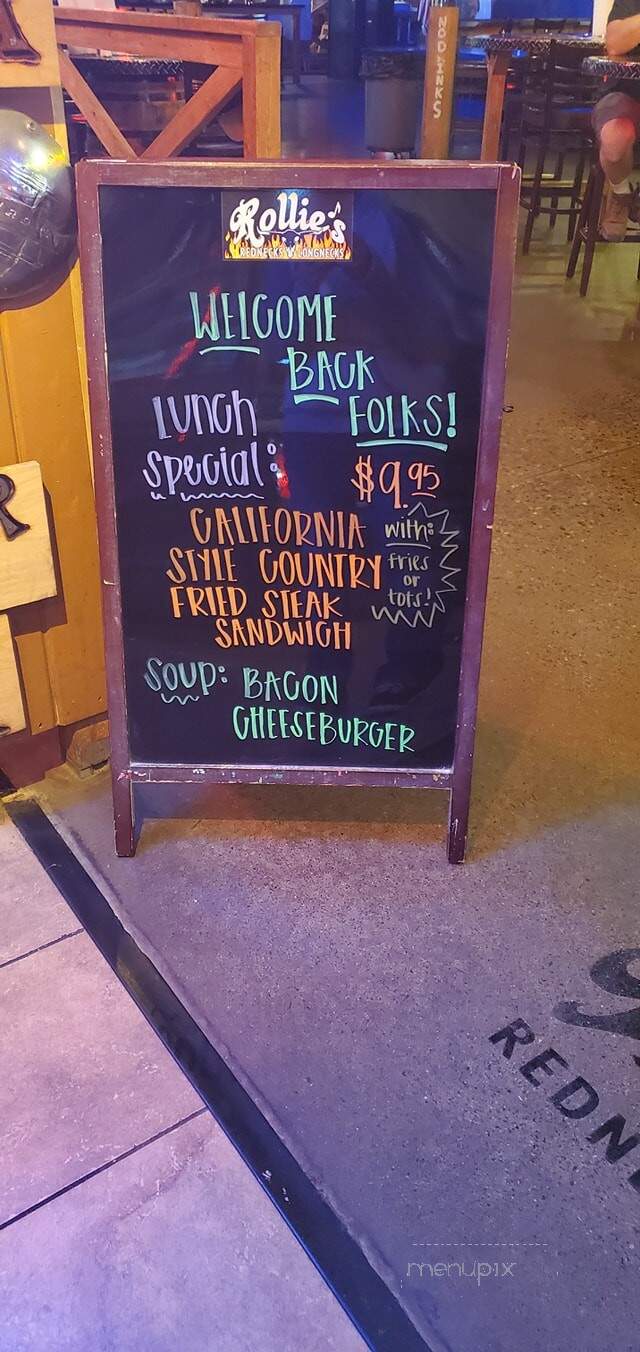 NO DRINKS
Rollie's
REDNECKS 'N' LONGNECKS
WELCOME
BACK
FOLKS!
LUNCH
Special:
$9.95
CALIFORNIA
STYLE COUNTRY
FRIED STEAK
SANDWICH
with:
fries
or
tots!
SOUP: BACON
CHEESEBURGER
R
R
REDN
menupix